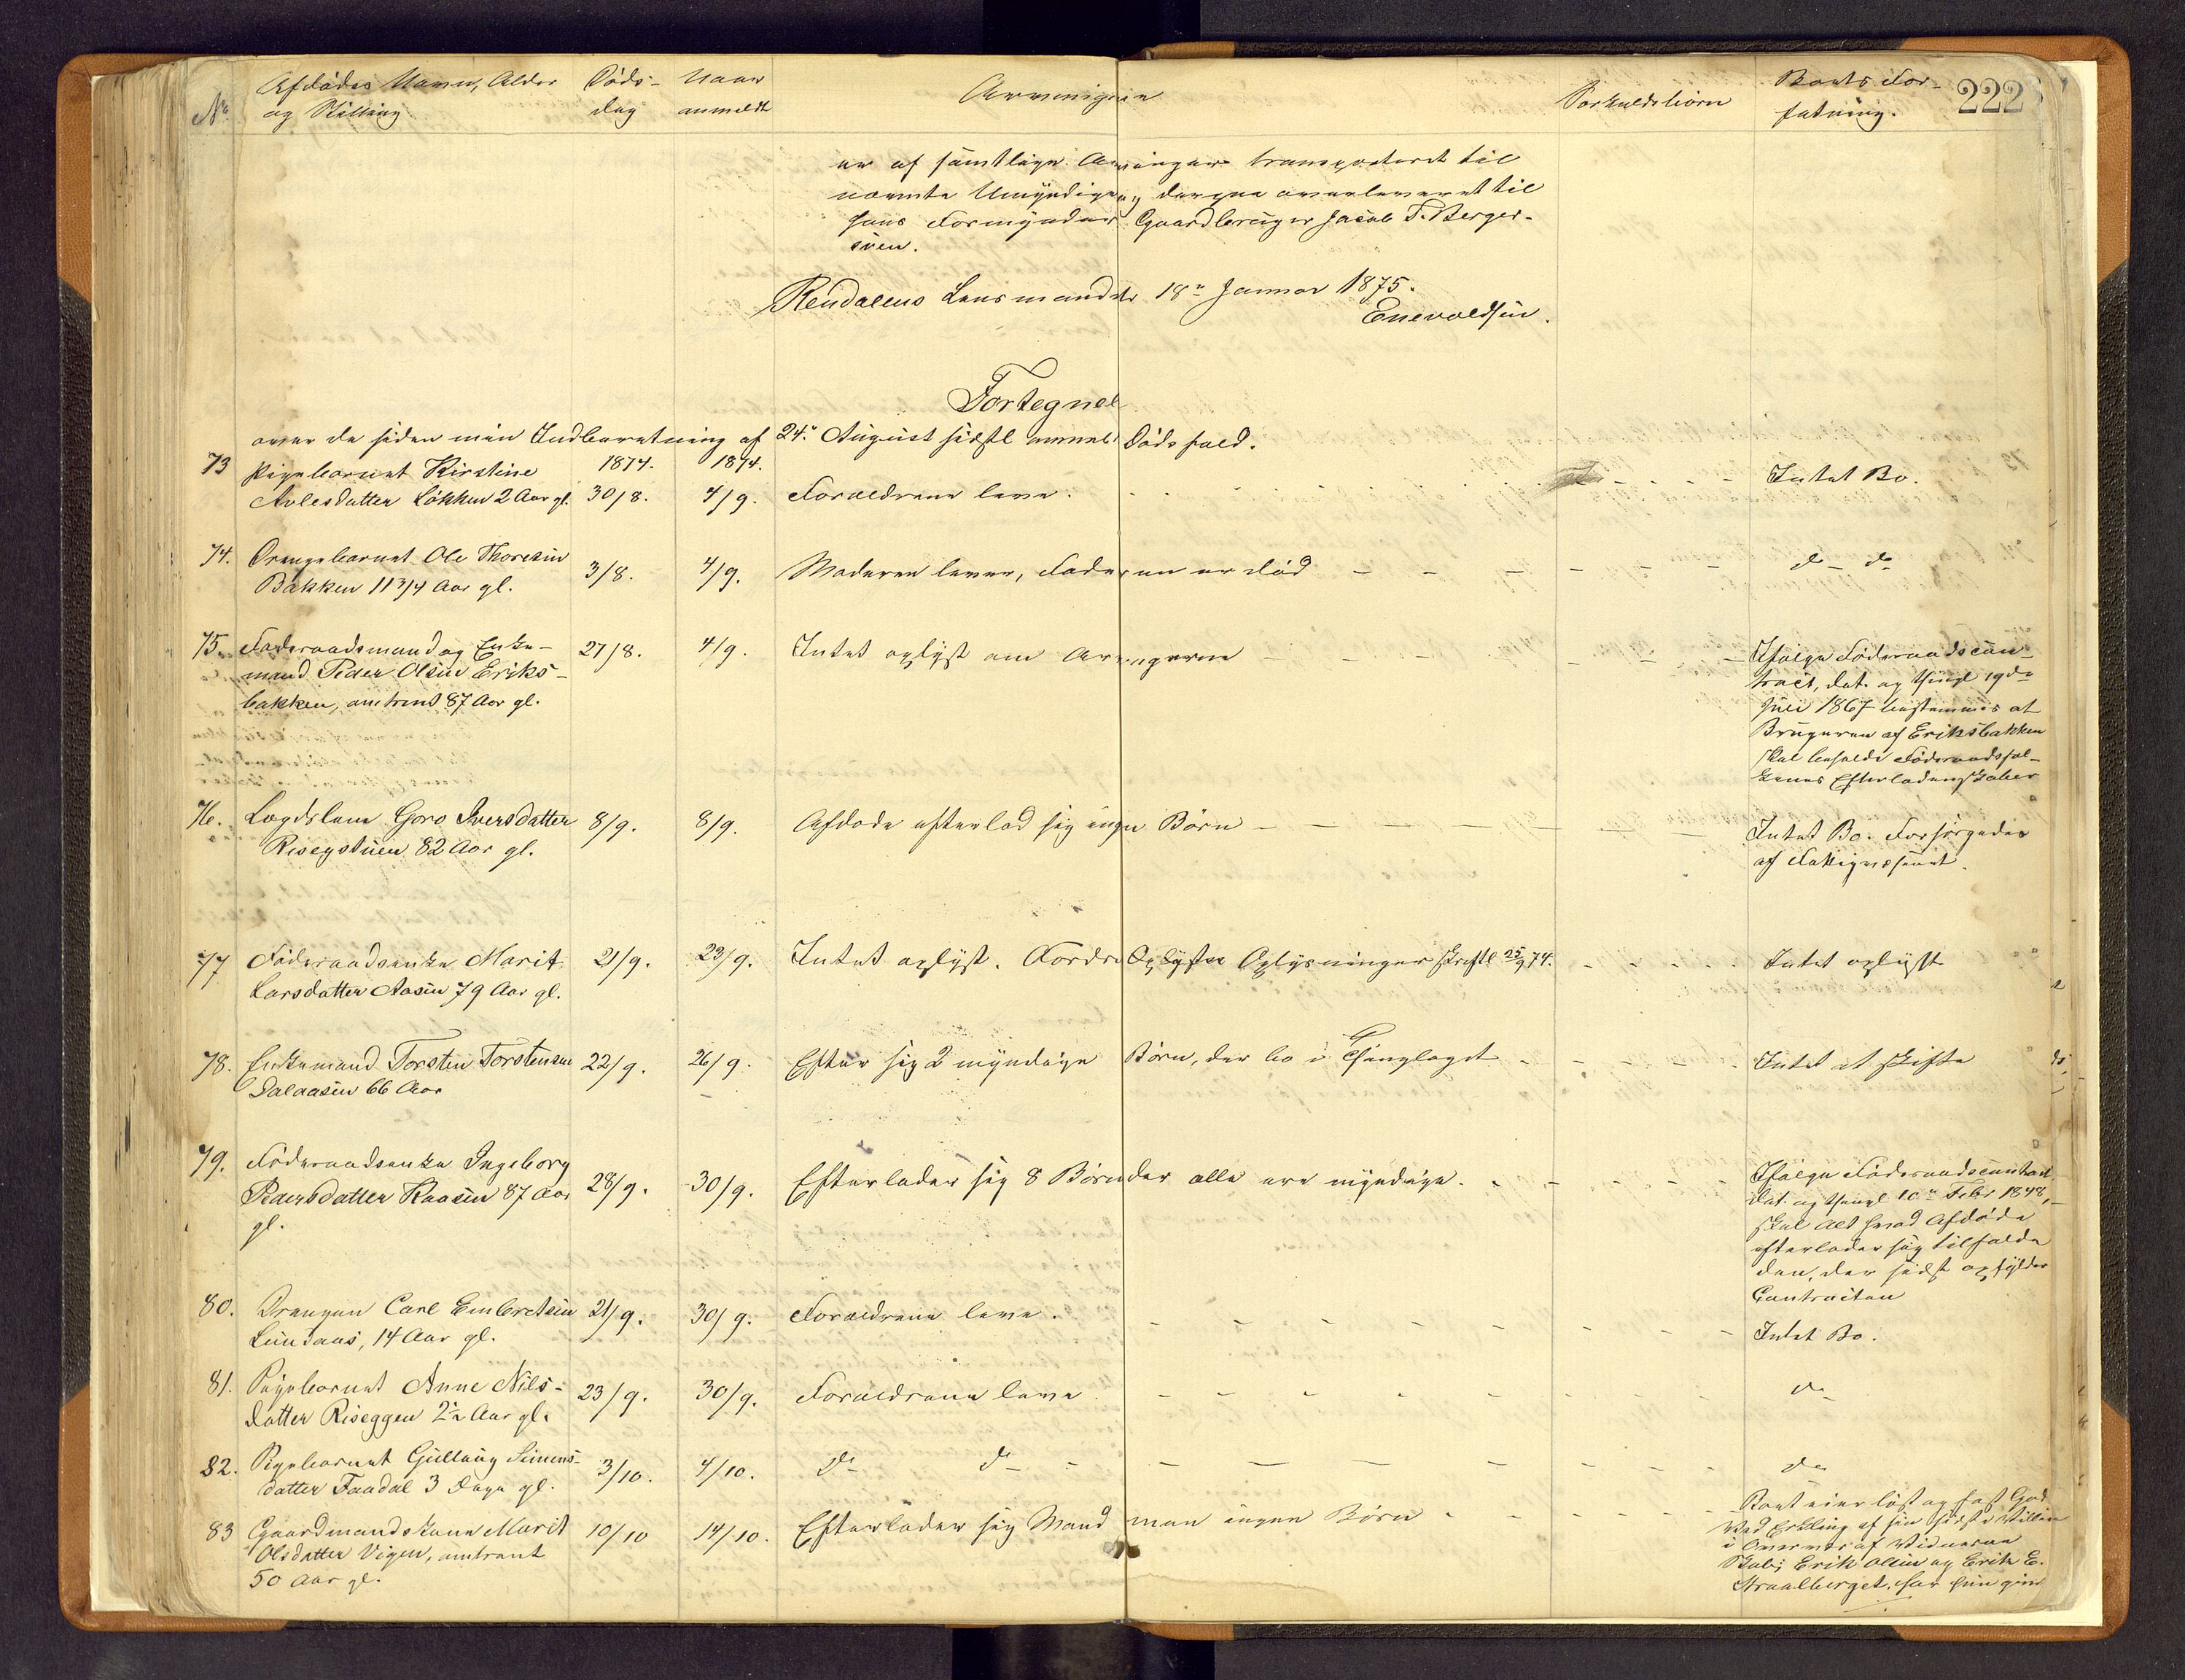 222
No
Afdødes Navn, Alder
og Stilling
Døds-
dag
Naar
anmeldt
Arvingerne
Forskudsbørn
Boets For-
fatning.
er af samtlige Arvinger transporteret til
nævnte Umyndige og derpaa overleveret til
hans Formynder Gaardbruger Jacob T. Berger-
sen.
Rendalens Lensmandsk. 18de Januar 1875.
Enevoldsen.
Fortegnel
over de siden min Indberetning af 24de August sidstl. anmeldte Dødsfald.
73 Pigebarnet Kirstine 1874. 1874.
Avlesdatter Løkken 2 Aar gl. 30/8. 4/9. Forældrene leve. Intet Bo.
74. Drengebarnet Ole Thoresen
Bakken 11 3/4 Aar gl. 3/8. 4/9. Moderen lever, Faderen er død do do
75. Føderaadsmand og Enke-
mand Peder Olsen Eriks-
bakken, omtrent 87 Aar gl. 27/8. 4/9. Intet oplyst om Arvingerne
Ifølge Føderaadscon-
tract, dat. og thingl. 19de
Juli 1867 bestemmes at
Brugeren af Eriksbakken
skal beholde Føderaadsfol-
kenes Efterladenskaber
76. Lægdslem Goro Iversdatter
Riseystuen 82 Aar gl. 8/9. 8/9. Afdøde efterlod sig ingen Børn
Intet Bo. Forsørgedes
af Fattigvæsenet.
77 Føderaadsenke Marit
Larsdatter Aasen 79 Aar gl. 21/9. 23/9. Intet oplyst. Fordre Oplyste Oplysninger skriftl. 25/9 74. Intet oplyst
78. Enkemand Torsten Torstensen
Dalaasen 66 Aar 22/9. 26/9. Efter sig 2 myndige Børn, der bo i Thinglaget Intet at skifte
79. Føderaadsenke Ingeborg
Pedersdatter Raasen 87 Aar
gl. 28/9. 30/9. Efterlader sig 8 Børn der alle ere myndige.
Ifølge Føderaadscontract
dat. og thingl. 10de Febr 1848,
skal alt hvad Afdøde
efterlader sig tilfalde
den, der sidst opfylder
Contracten
80. Drengen Carl Embretsen
Lunsaas, 14 Aar gl. 21/9. 30/9. Forældrene leve. Intet Bo.
81. Pigebarnet Anne Nils-
datter Riseggen 2 1/2 Aar gl. 23/9. 30/9. Forældrene leve. do
82. Pigebarnet Gullaug Simens-
datter Faadal 3 Dage gl. 3/10. 4/10. do do do
83 Gaardmandskone Marit
Olsdatter Vigen, omtrent
50 Aar gl. 10/10 14/10. Efterlader sig Mand men ingen Børn
Boet eier løst og fast Gods
Ved Erkling af sin sidste Villie
i Overvær af Vidnerne
Erik Olsen og Erik E.
Straalberget, har hun givet